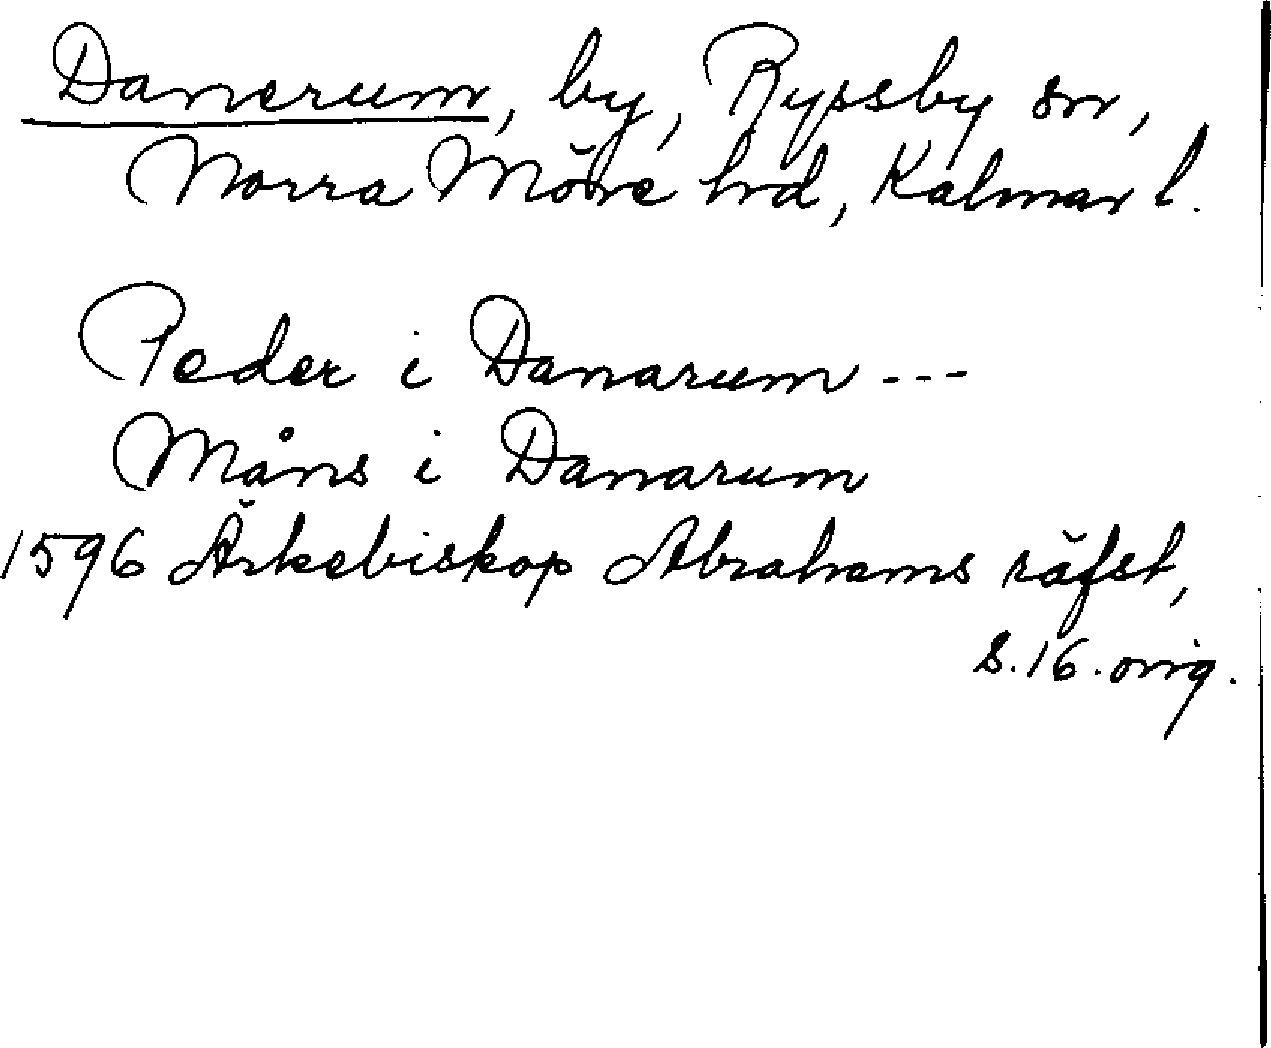 Danerum, by, Ryssby sn,
Norra Möre hrd, Kalmar l.
Peder i Danarum ---
Måns i Danarum
1596 Ärkebiskop Abrahams räfst,
s. 16. orig.